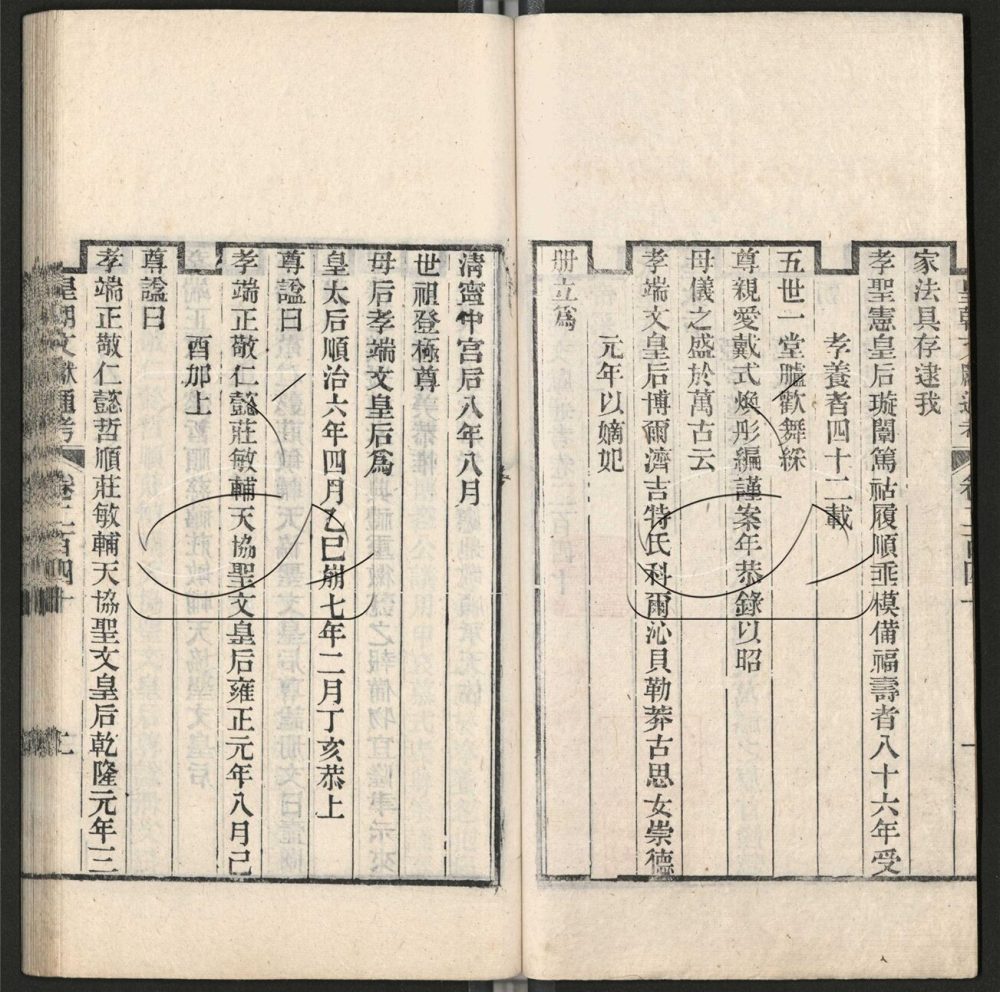 家法具存逮我
孝聖憲皇后璇闈篤祜履順垂模備福壽者八十六年受
孝養者四十二載
五世一堂臚歡舞綵
尊親愛戴式煥彤編謹案年恭錄以昭
母儀之盛於萬古云
孝端文皇后博爾濟吉特氏科爾沁貝勒莽古思女崇德
元年以嫡妃
冊立爲
清寧中宮后八年八月
世祖登極尊
母后孝端文皇后爲
皇太后順治六年四月乙巳崩七年二月丁亥恭上
尊諡曰
孝端正敬仁懿莊敏輔天協聖文皇后雍正元年八月己
酉加上
尊諡曰
孝端正敬仁懿哲順莊敏輔天協聖文皇后乾隆元年三
皇朝文獻通考 卷二百四十